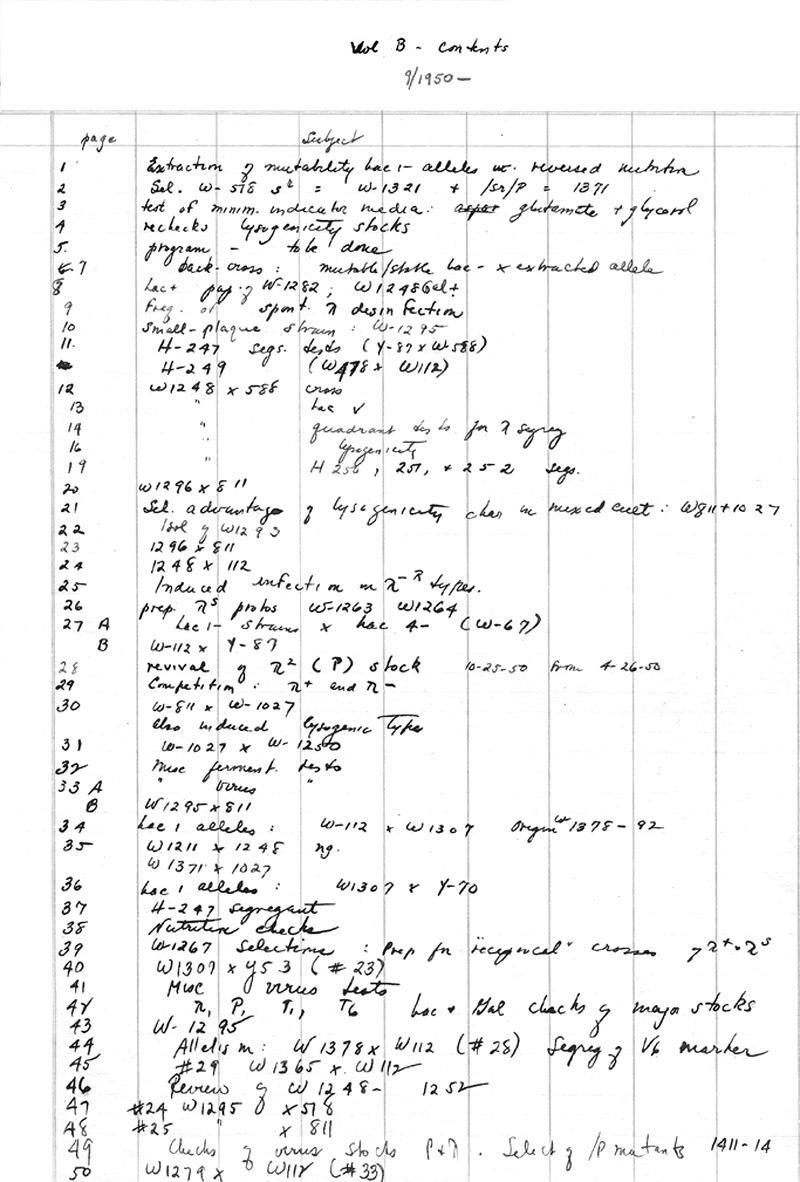 Vol B - Contents
9/1950 —
page Subject
1 Extraction of mutability Lac 1- alleles reversed nutrition
2 Sel. W-518 s^r = W-1321 + /Sr/P = 1371
3 test of minim. indicator media: aspar glutamate + glycerol
4 rechecks lysogenicity stocks
5. program - to be done
6-7 back-cross: mutable/stable Lac- x extracted allele
8 Lac+ pap. of W-1282; W1248Gal+
9 Freq. of spont. λ desinfection
10 Small-plaque strain: W-1295
11. H-247 segs. tests (Y-87 x W-588)
H-249 (W478 x W112)
12 W1248 x 588 cross
13 " Lac v
14 " quadrant tests for λ segreg
16 " lysogenicity
19 " H 250, 251, + 252 segs.
20 W1296 x 811
21 Sel. advantage of lysogenicity char in mixed cult: W811+1027
22 Isol of W1293
23 1296 x 811
24 1248 x 112
25 Induced infection in λ^-R types.
26 prep. λ^s protos W-1263 W1264
27 A Lac 1- strains x Lac 4- (W-67)
B W-112 x Y-87
28 revival of λ^2 (P) stock 10-25-50 from 4-26-50
29 Competition: λ+ and λ-
30 W-811 x W-1027
Also induced lysogenic types
31 W-1027 x W-1250
32 Misc ferment. tests
33 A " virus "
B W1295 x 811
34 Lac 1 alleles: W-112 x W1307 Origin of 1378-92
35 W1211 x 1248 ng.
W1371 x 1027
36 Lac 1 alleles: W1307 x Y-70
37 H-247 segregant
38 Nutrition checks
39 W-1267 Selections: Prep for "reciprocal" crosses of λ+ . λ^s
40 W1307 x Y53 (#23)
41 Misc virus tests
42 λ, P, T1, T6 Lac + Gal checks of major stocks
43 W-1295
44 Allelism: W1378 x W112 (#28) Segreg of V6 marker
45 #29 W1365 x W112
46 Review of W1248-1252
47 #24 W1295 x 518
48 #25 " x 811
49 Checks of virus stocks P+λ. Select of /P mutants 1411-14
50 W1279 x W112 (#33)